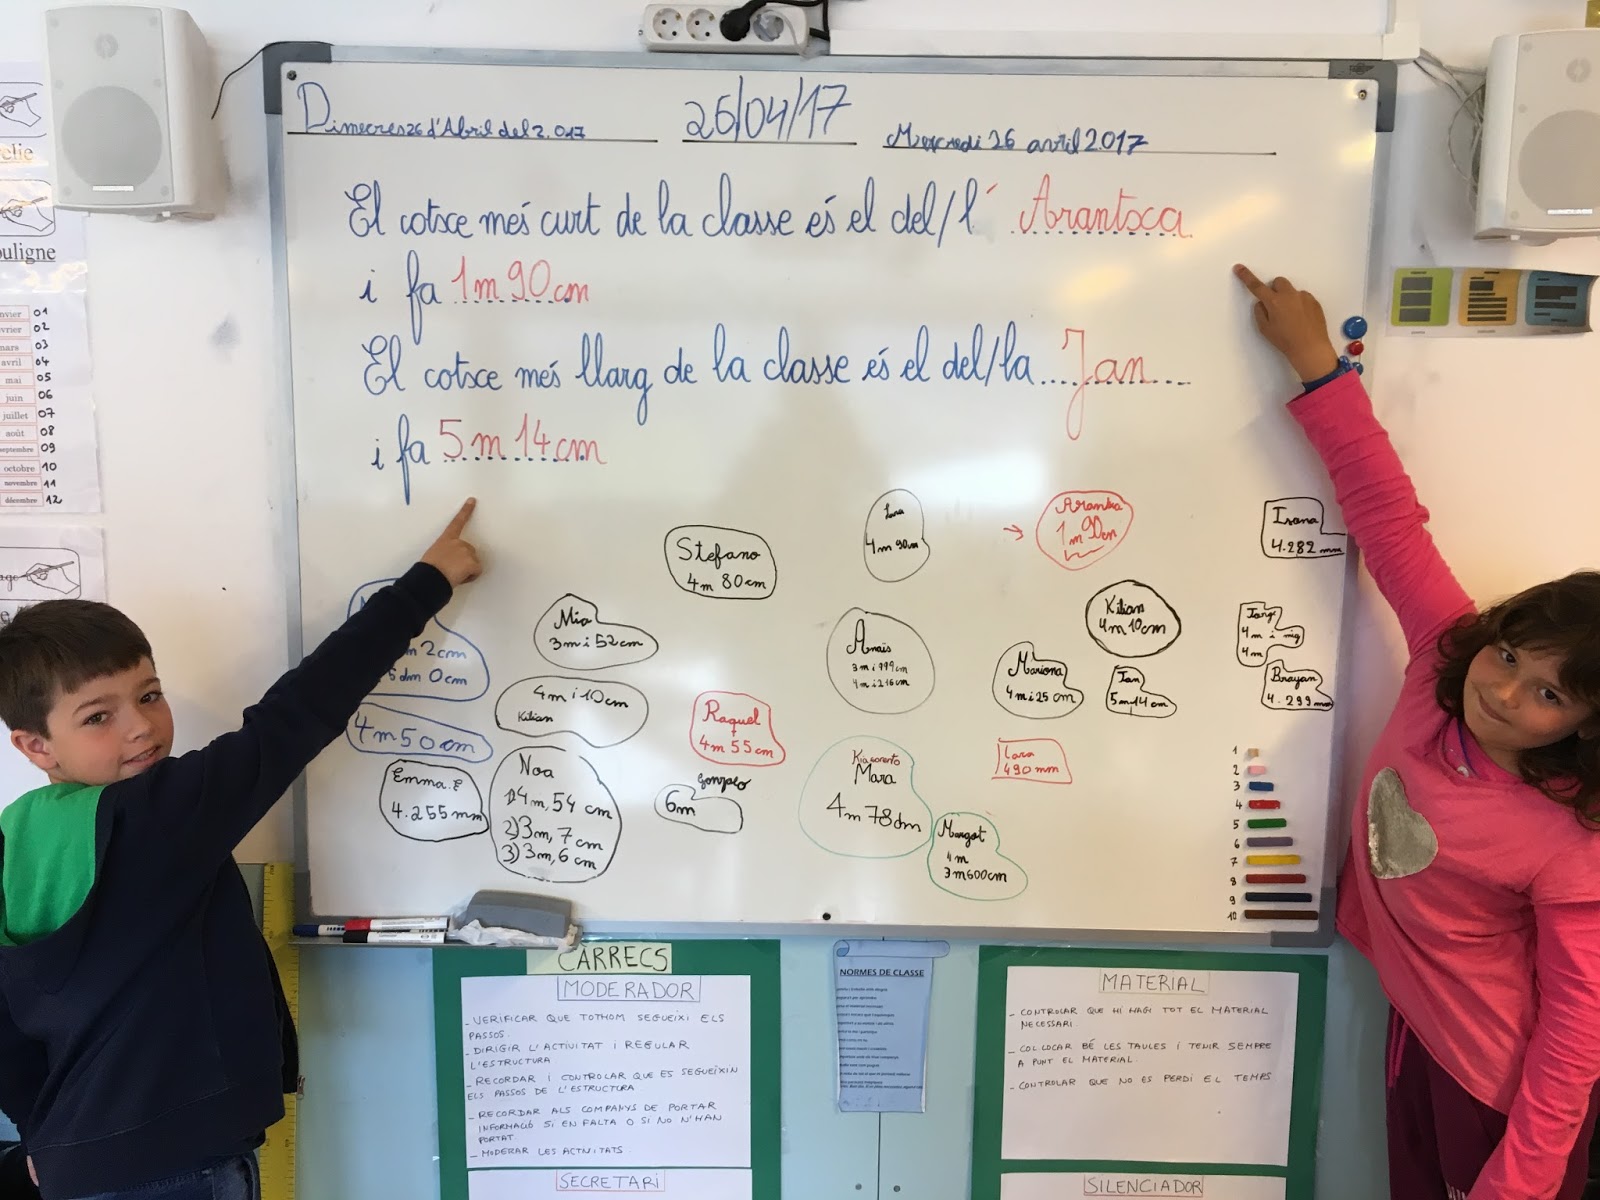 Dimecres 26 d'Abril del 2.017
26/04/17
Mercredi 26 avril 2.017
El cotxe més curt de la classe és el del/l' Arantxa
i fa 1m 90cm
El cotxe més llarg de la classe és el del/la Jan
i fa 5m 14cm
Stefano
4m 80cm
4m 90cm
1m 90cm
4.282 mm
Mia
3m i 52cm
2cm
dm 0cm
4m 50cm
4m i 10cm
Kilian
Raquel
4m 55cm
Anaïs
3m i 999cm
4m i 216cm
Mariona
4m i 25 cm
Kilian
4m 10cm
Jan
5m 14 cm
4m i mig
4m
Brayan
4.299 mm
Emma.E
4.255 mm
Noa
1) 4m, 54 cm
2) 3m, 7 cm
3) 3m, 6 cm
6m
Mara
4m 78dm
Margot
4m
3m600cm
Lara
490 mm
1
2
3
4
5
6
7
8
9
10
elie
ouligne
nvier 01
vrier 02
mars 03
avril 04
mai 05
juin 06
juillet 07
août 08
septembre 09
octobre 10
novembre 11
décembre 12
CÀRRECS
MODERADOR
- VERIFICAR QUE TOTHOM SEGUEIXI ELS
PASSOS.
- DIRIGIR L'ACTIVITAT I REGULAR
L'ESTRUCTURA
- RECORDAR I CONTROLAR QUE ES SEGUEIXIN
ELS PASSOS DE L'ESTRUCTURA.
- RECORDAR ALS COMPANYS DE PORTAR
INFORMACIÓ SI EN FALTA O SI NO N'HAN
PORTAT.
- MODERAR LES ACTIVITATS.
SECRETARI
NORMES DE CLASSE
MATERIAL
- CONTROLAR QUE HI HAGI TOT EL MATERIAL
NECESSARI
- COL·LOCAR BÉ LES TAULES I TENIR SEMPRE
A PUNT EL MATERIAL.
- CONTROLAR QUE NO ES PERDI EL TEMPS
SILENCIADOR